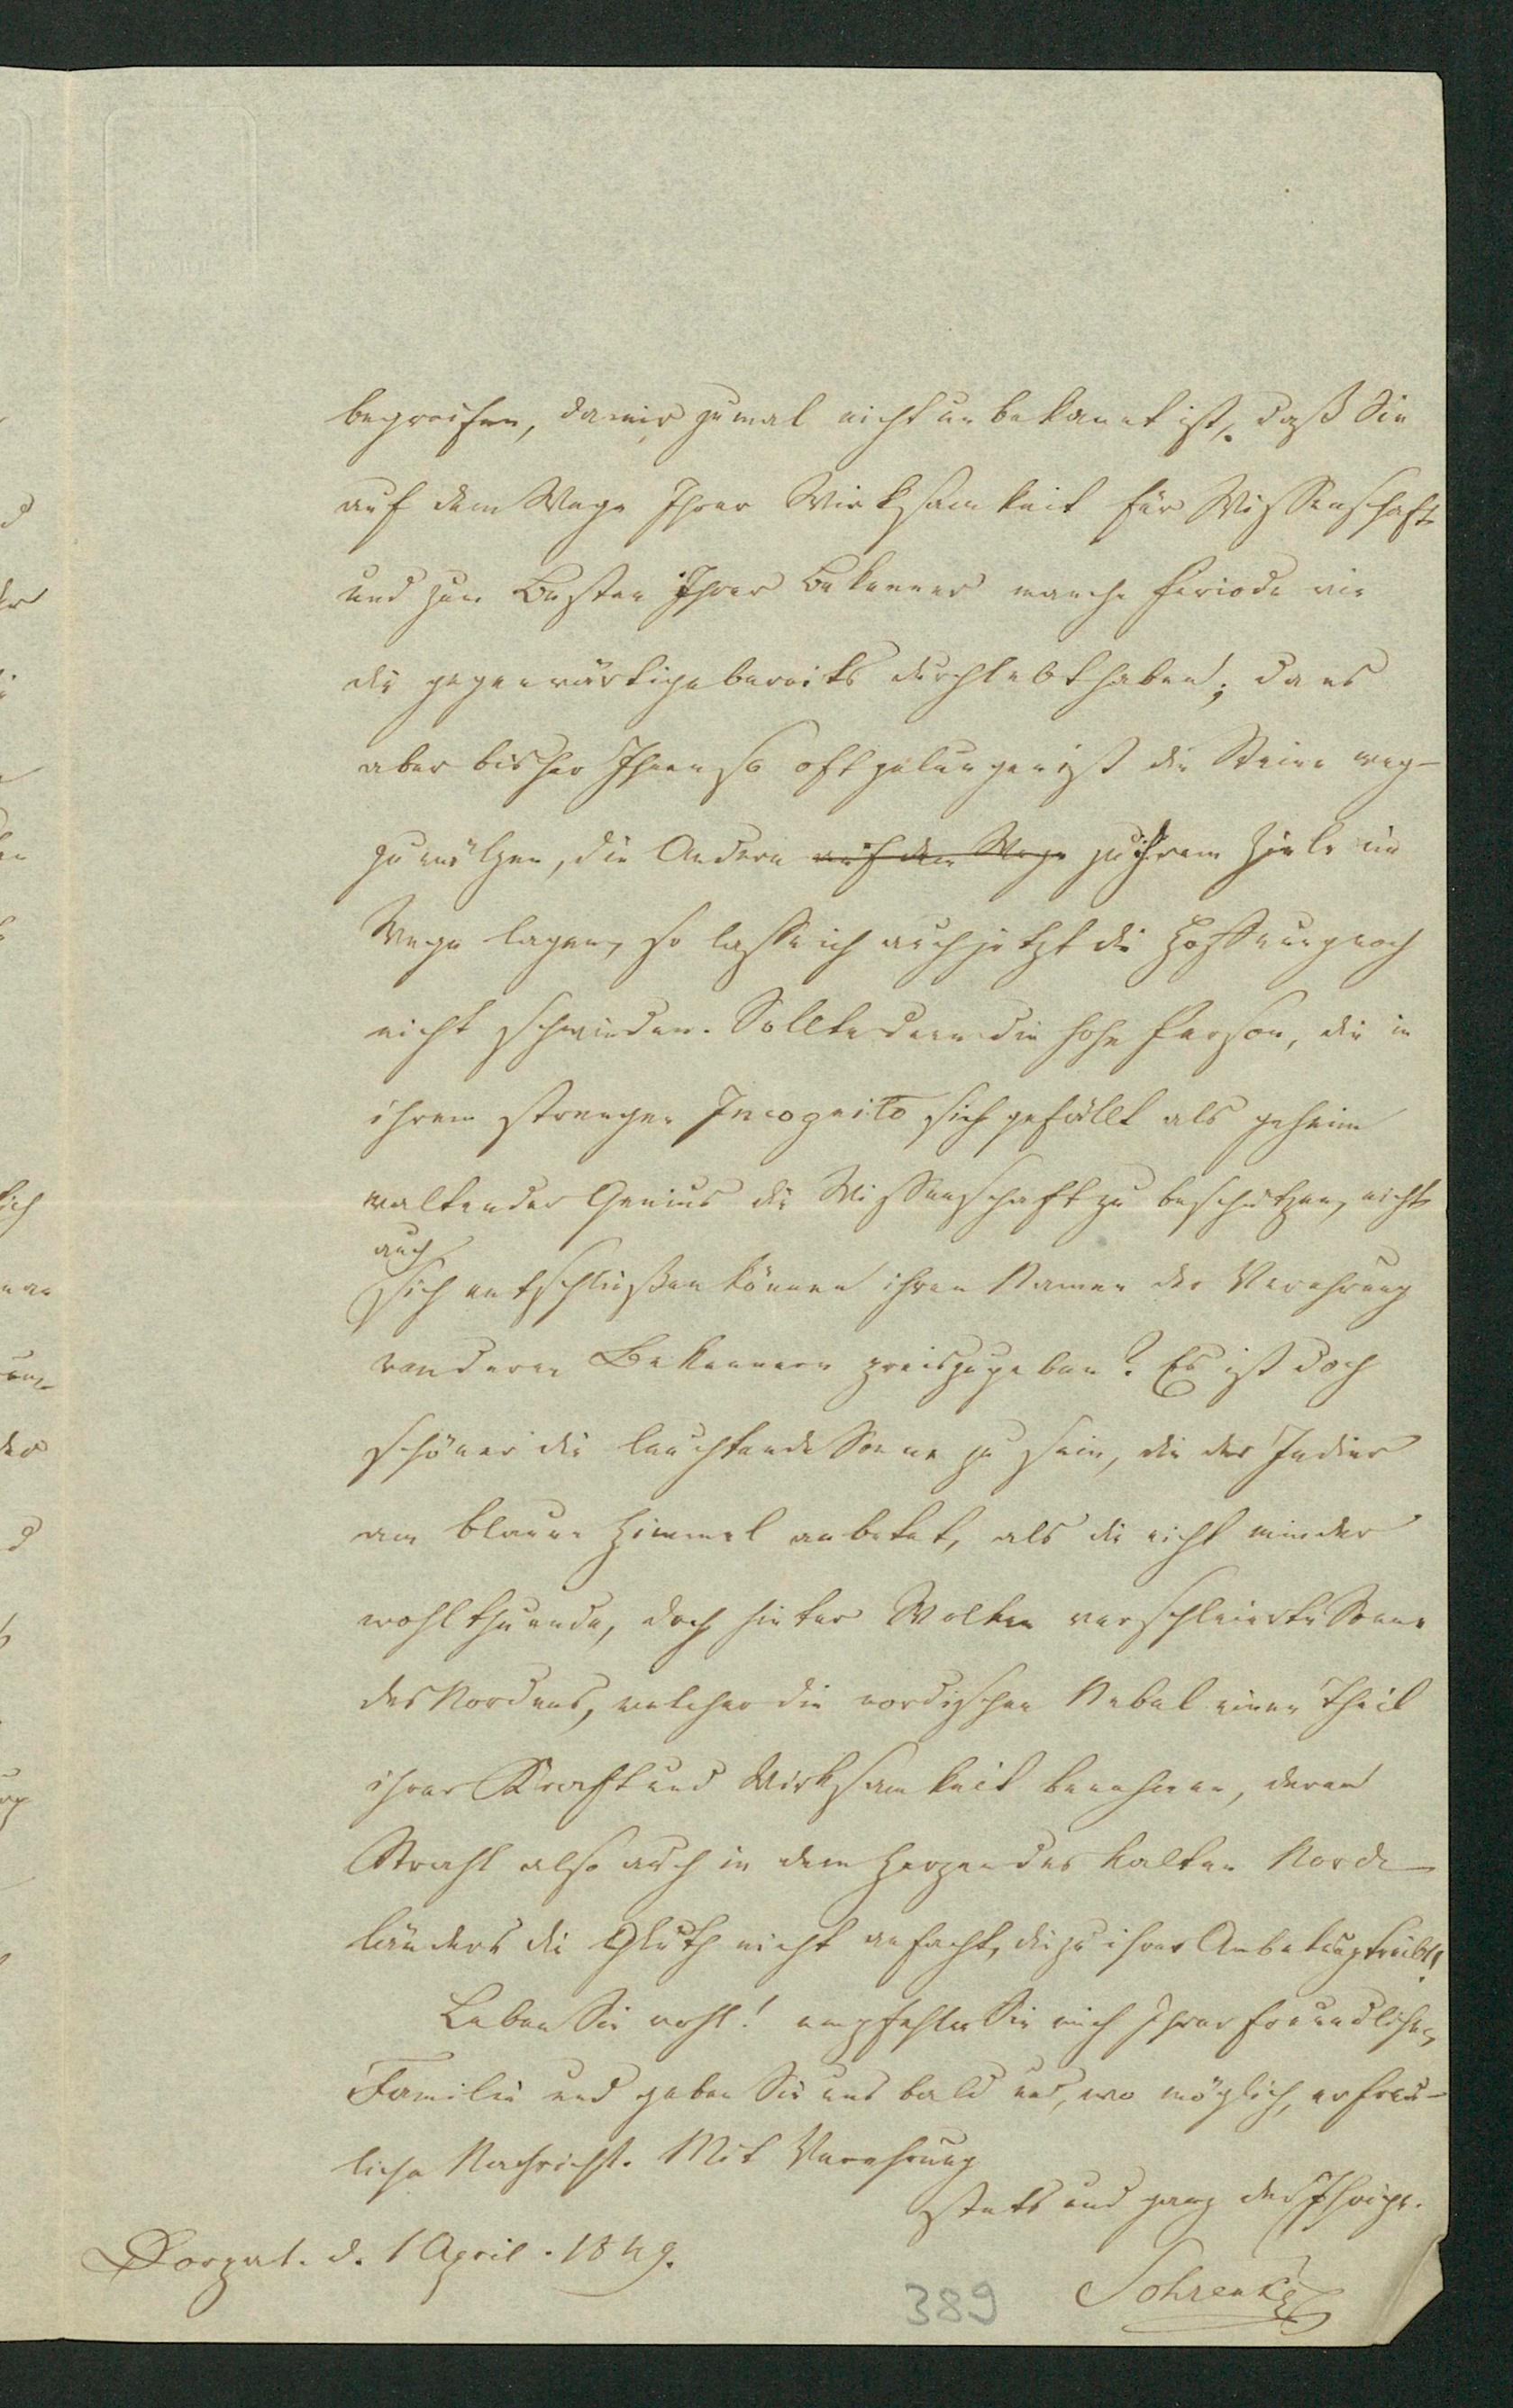 begreifen, da mir zumal nicht unbekannt ist, daß Sie
auf dem Wege Ihrer Wirksamkeit für Wissenschaft
und zum Besten Ihrer Bekenner manche Periode wie
die gegenwärtige bereits durchlebt haben; da es
aber bisher Ihnen so oft gelungen ist die Steine weg-
zuwälzen, die Andern auf dem Wege zu ihrem Ziele im
Wege lagen, so lasse ich auch jetzt die Hoffnung noch
nicht schwinden. Sollte denn die hohe Person, die in
ihrem strengen Incognito sich gefällt als geheim
waltender Genius die Wissenschaft zu beschützen, nicht
auch
sich entschließen können ihren Namen der Verehrung
von deren Bekennern preiszugeben? Es ist doch
schöner die leuchtende Sonne zu sein, die der Indier
am blauen Himmel anbetet, als die nicht minder
wohlthuende, doch hinter Wolken verschleierte Sonne
des Nordens, welcher die nordischen Nebel einen Theil
ihrer Kraft und Wirksamkeit benehmen, deren
Strahl also auch in dem Herzen des kalten Nord-
länders die Gluth nicht anfacht, die zu ihrer Anbetung treibt!
Leben Sie wohl! empfehlen Sie mich Ihrer freundlichen
Familie und geben Sie uns bald und, wo möglich, erfreu-
liche Nachricht. Mit Verehrung
stets und ganz der Ihrige.
Dorpat. d. 1 April. 1849.
Schrenk
389